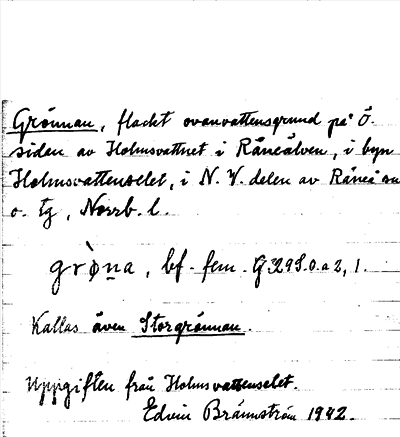 Grönnan, flackt ovanvattensgrund på Ö.
sidan av Holmsvattnet i Råneälven, i byn
Holmsvattenselet, i N.V. delen av Råneå sn
o. tg, Norrb. l.
grø̀n̲a, bf. fem.
Kallas även Storgrönnan.
Uppgiften från Holmsvattenselet.
Edvin Brännström 1942.